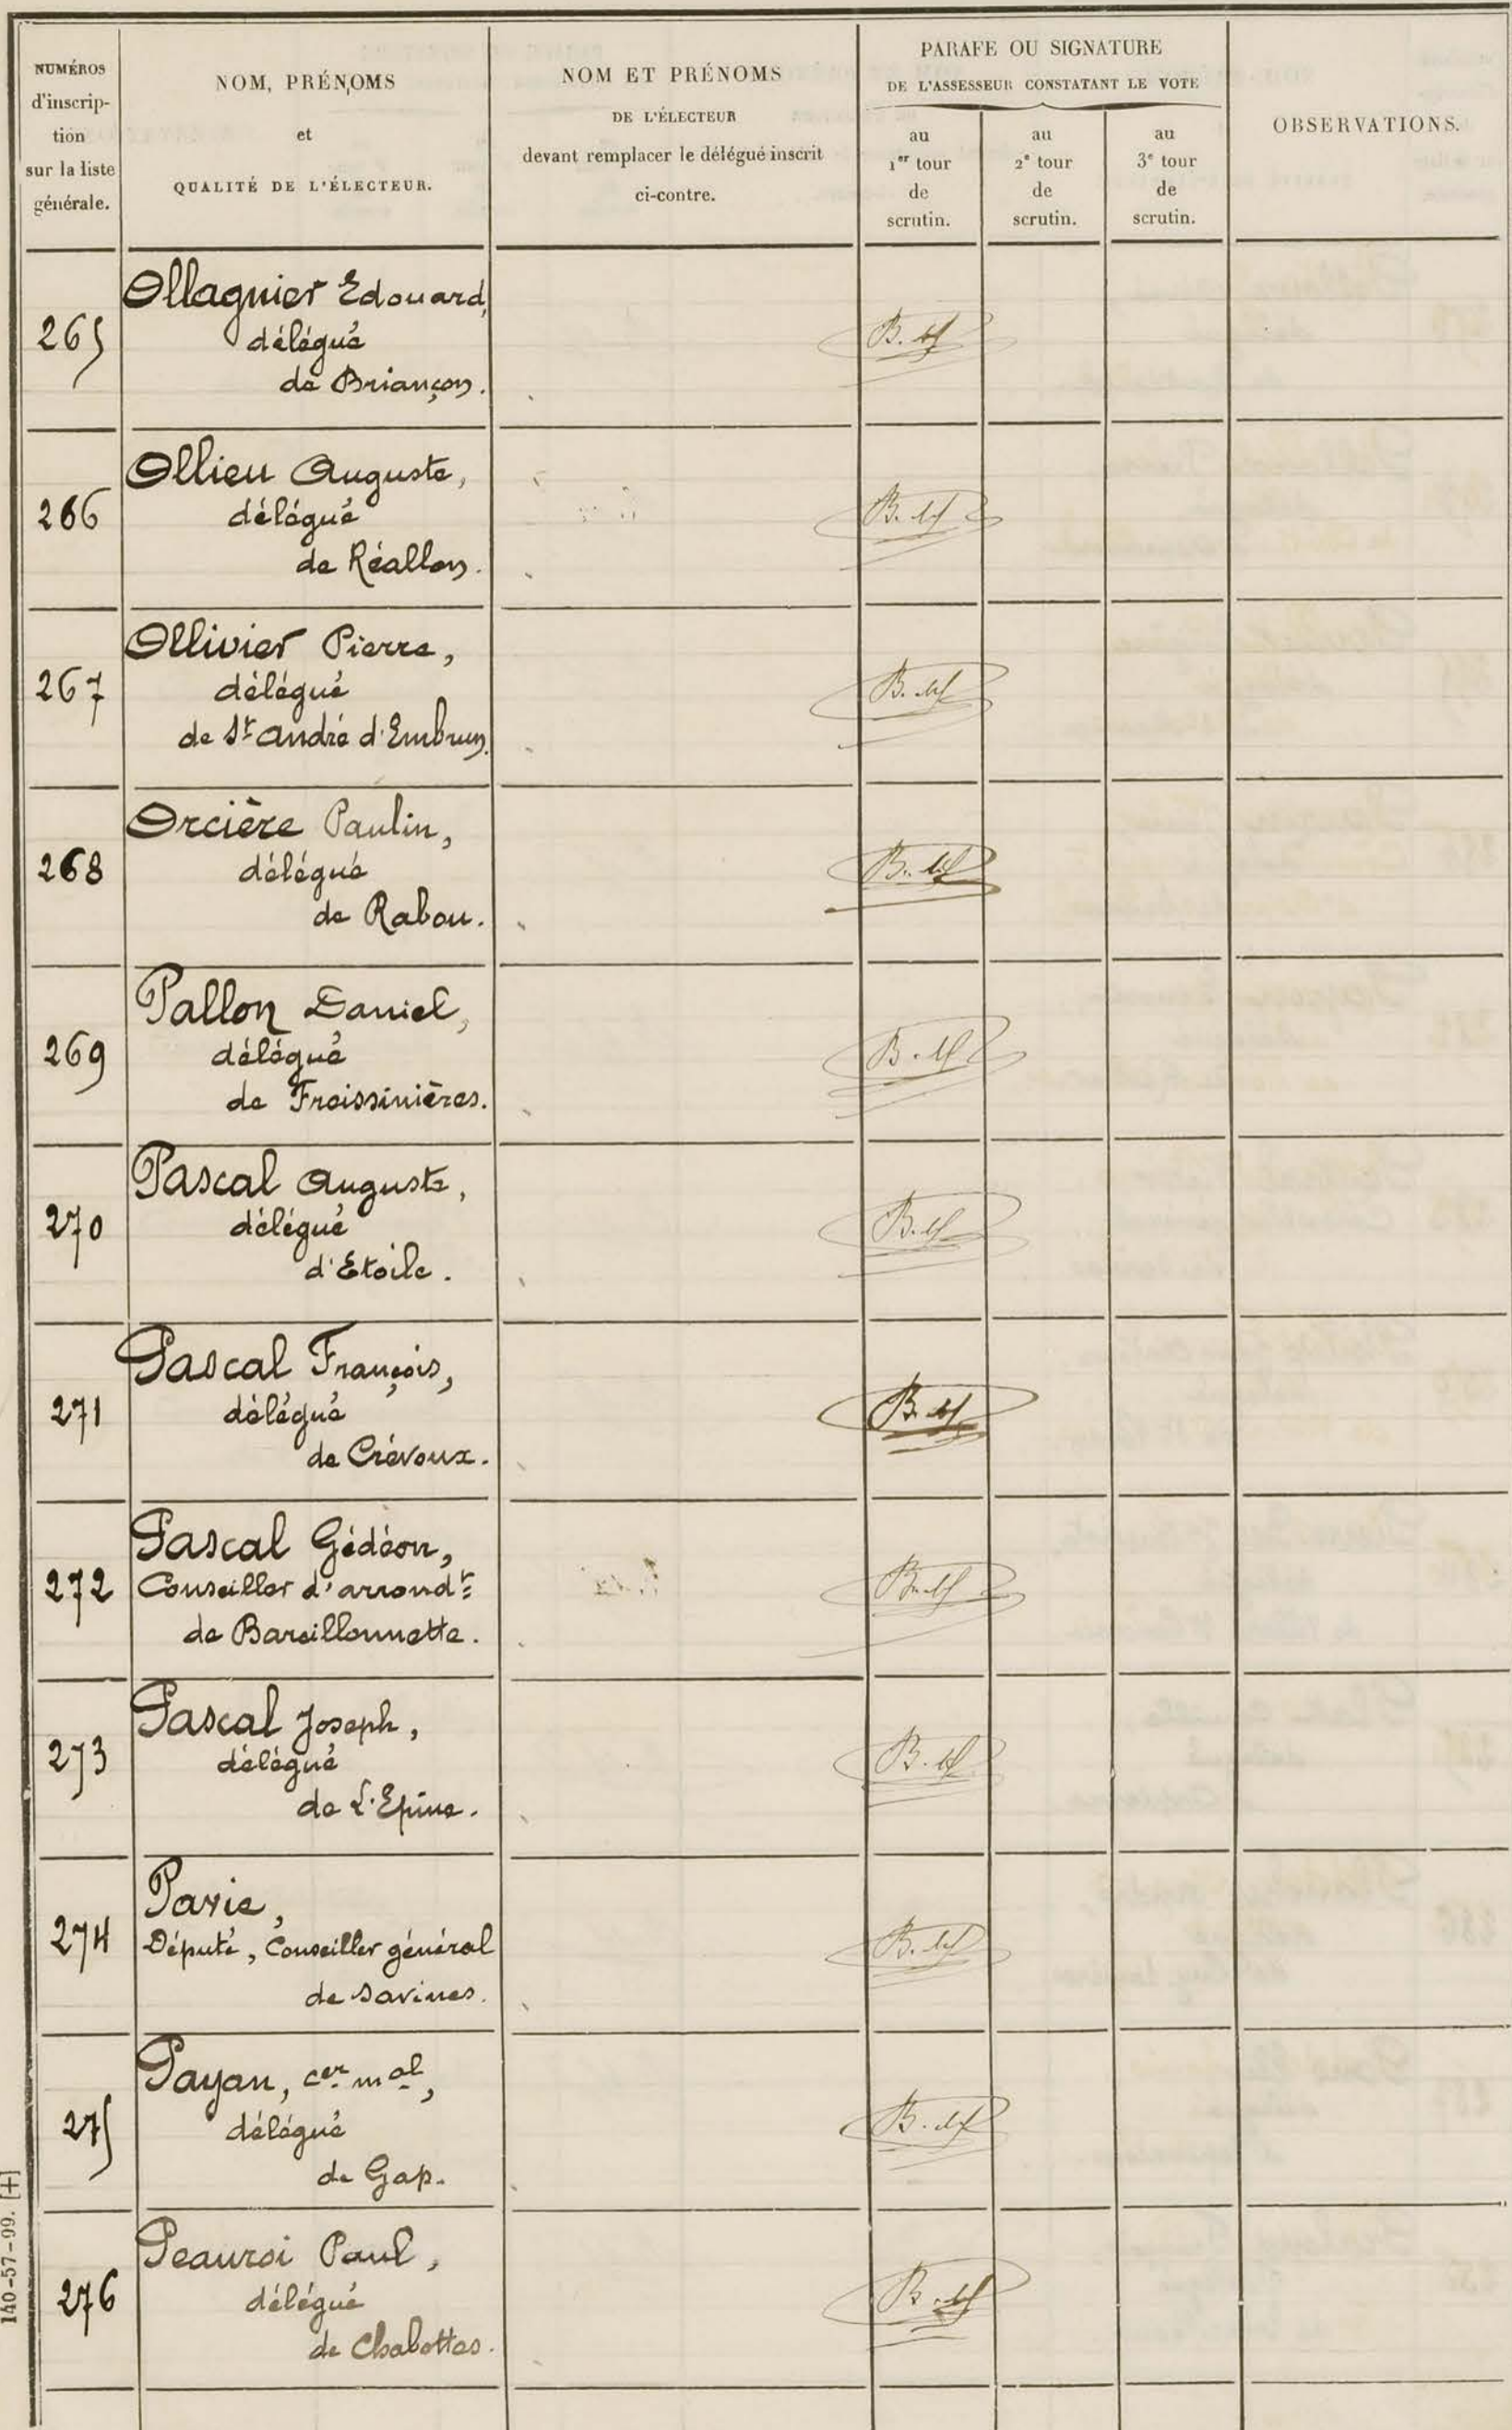 NUMÉROS
d'inscrip-
tion
sur la liste
générale.
NOM, PRÉNOMS
et
QUALITÉ DE L'ÉLECTEUR.
NOM ET PRÉNOMS
DE L'ÉLECTEUR
devant remplacer le délégué inscrit
ci-contre.
PARAFE OU SIGNATURE
DE L'ASSESSEUR CONSTATANT LE VOTE
au
1er tour
de
scrutin.
au
2e tour
de
scrutin.
au
3e tour
de
scrutin.
OBSERVATIONS.
265
Ollagnier Edouard,
délégué
de Briançon.
266
Ollieu Auguste,
délégué
de Réallon.
267
Ollivier Pierre,
délégué
de St André d'Embrun.
268
Orcière Paulin,
délégué
de Rabou.
269
Pallon Daniel,
délégué
de Freissinières.
270
Pascal Auguste,
délégué
d'Etoile.
271
Pascal François,
délégué
de Crévoux.
272
Pascal Gédéon,
Conseiller d'arrondt
de Barcillonnette.
273
Pascal Joseph,
délégué
de L'Epine.
274
Pavie,
Député, Conseiller général
de Savines.
275
Payan, cer mal,
délégué
de Gap.
276
Peauroi Paul,
délégué
de Chabottes.
140-57-99. [+]